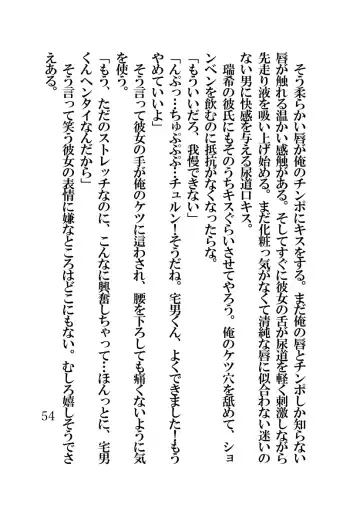 そう柔らかい唇が俺のチンポにキスをする。まだ俺の唇とチンポしか知らない
唇が触れる温かい感触がある。そしてすぐに彼女の舌が尿道を軽く刺激しながら
先走り液を吸い上げ始める。まだ化粧っ気がなくて清純な唇に似合わない迷いの
ない男に快感を与える尿道口キス。
瑞希の彼氏にもそのうちキスぐらいさせてやろう。俺のケツ穴を舐めて、ショ
ンベンを飲むのに抵抗がなくなったらな。
「もういいだろ、我慢できない」
「んぷっ…ちゅぷぷぷ…チュルン!そうだね。宅男くん、よくできました!もう
やめていいよ」
そう言って彼女の手が俺のケツに這わされ、腰を下ろしても痛くないように気
を使う。
「もう、ただのストレッチなのに、こんなに興奮しちゃって…ほんっとに、宅男
くんヘンタイなんだから」
そう言って笑う彼女の表情に嫌なところはどこにもない。むしろ嬉しそうでさ
えある。
54